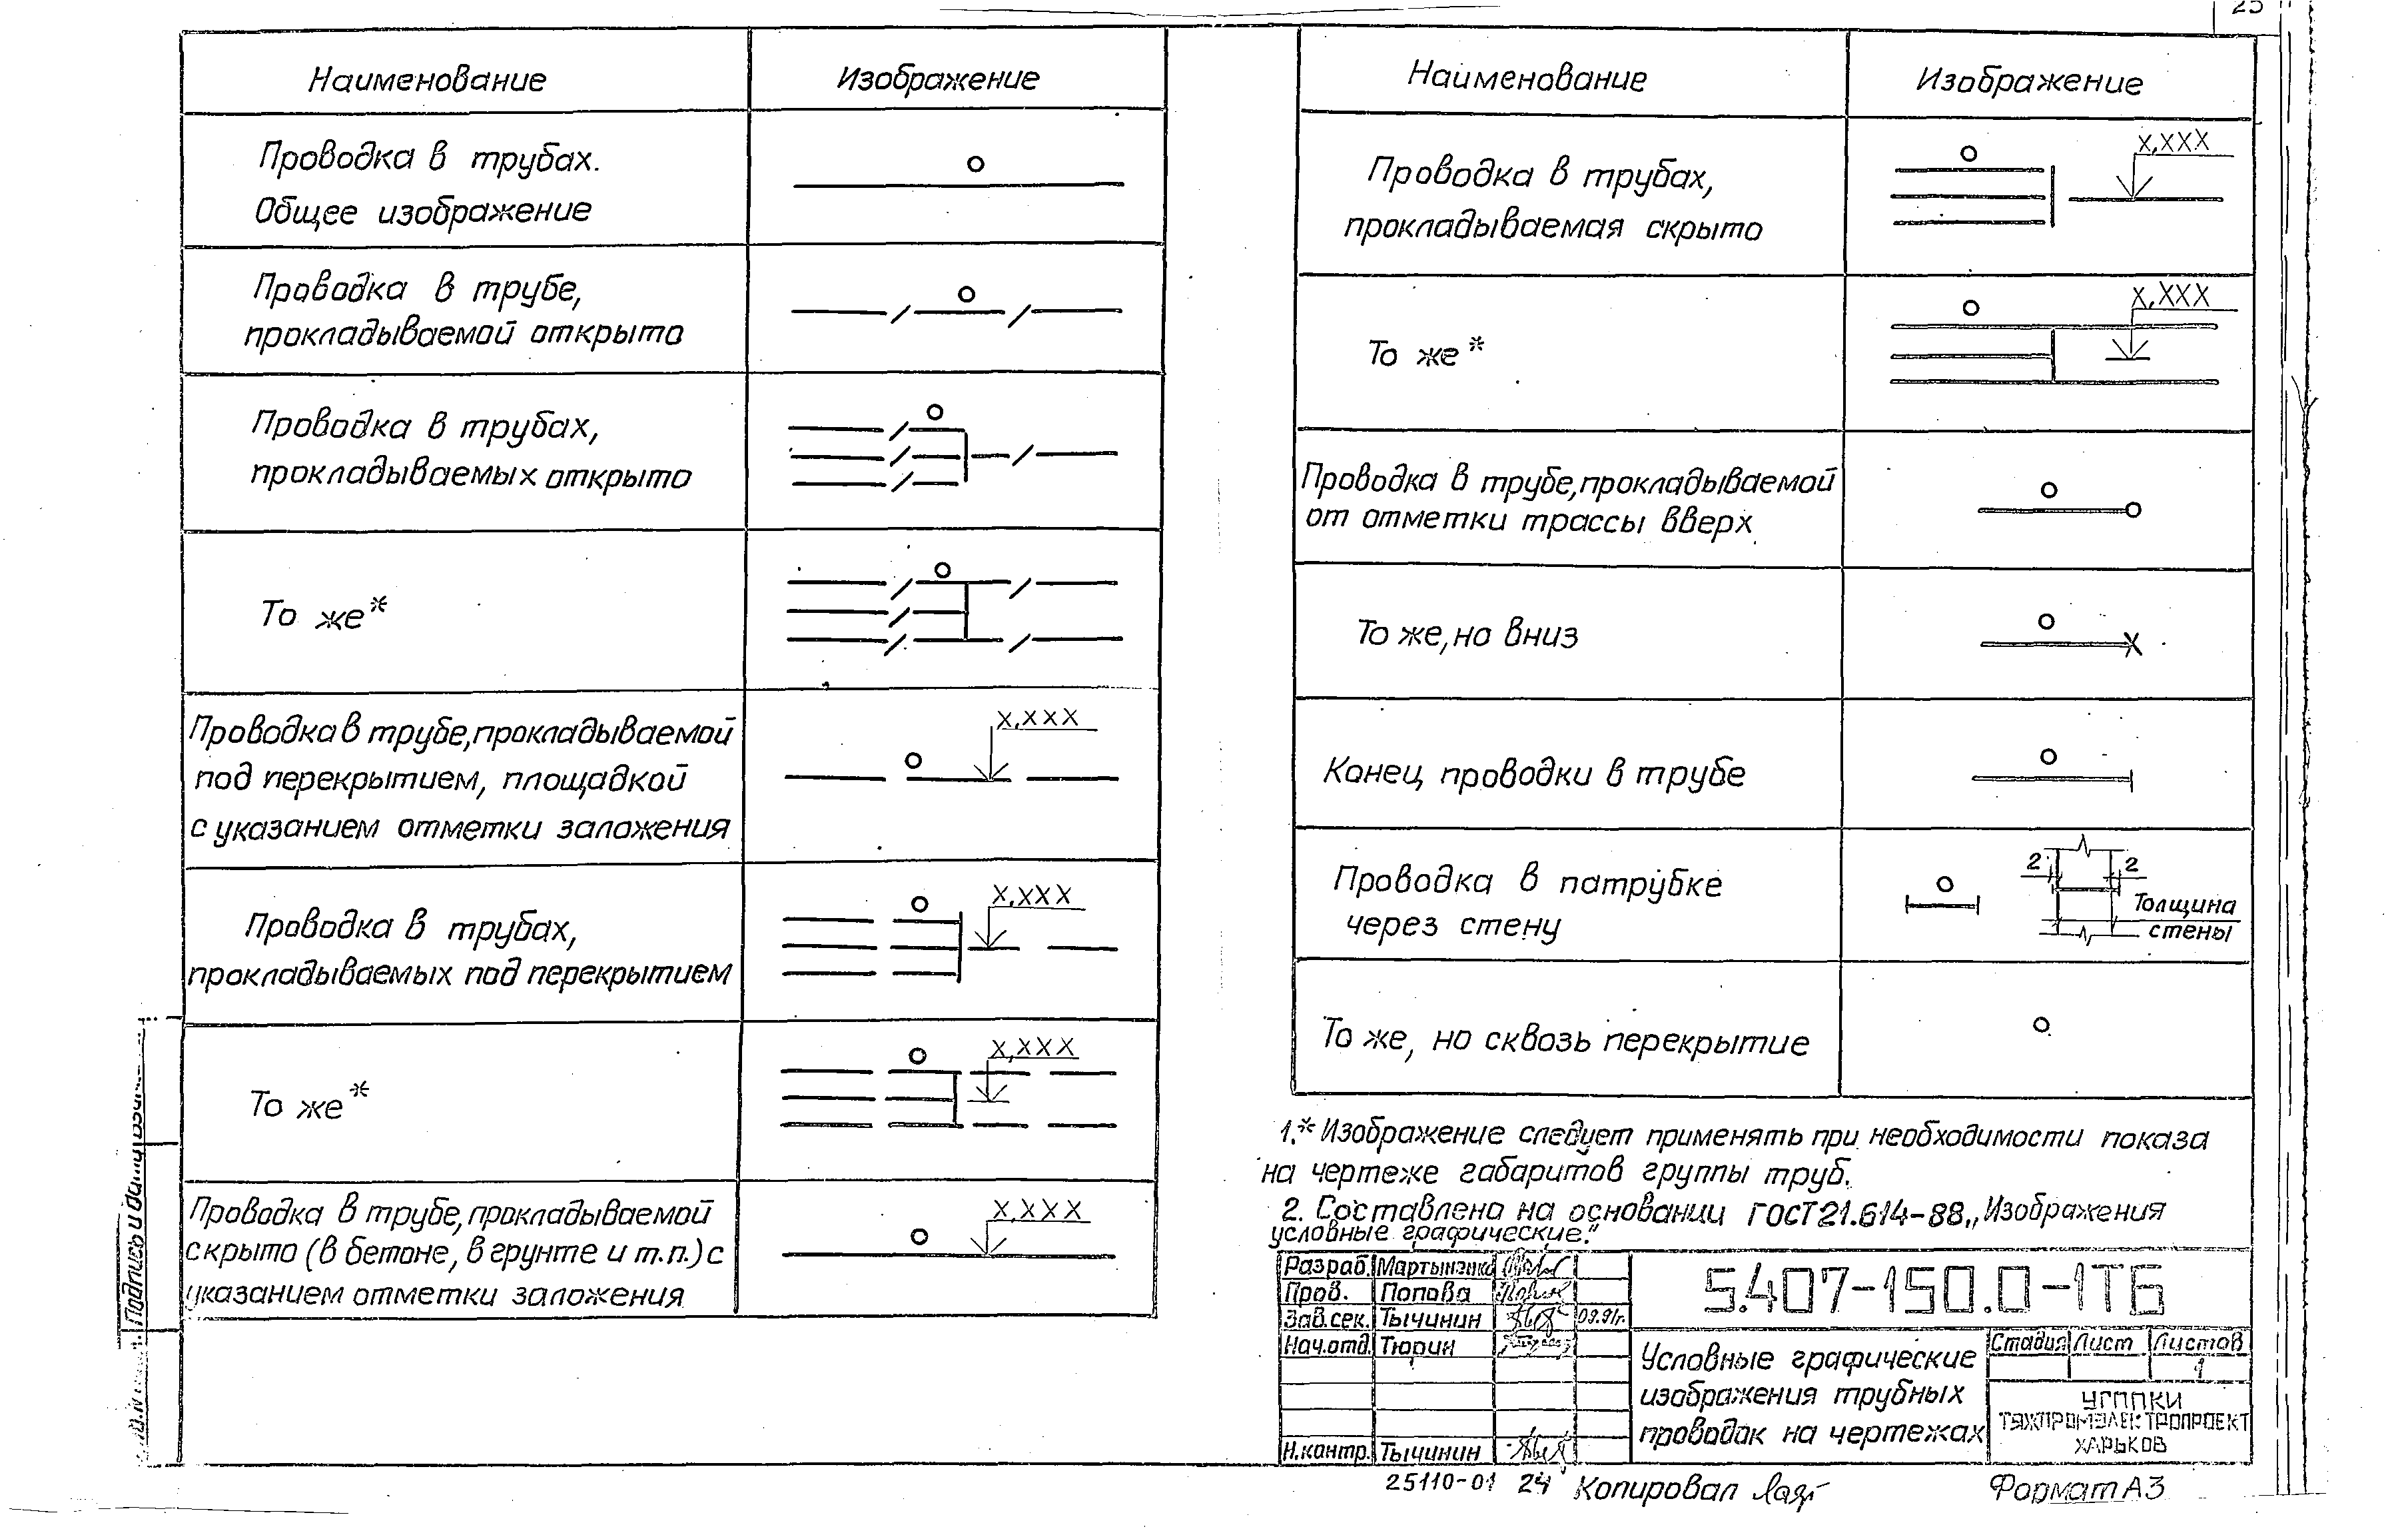 25
Наименование
Изображение
Проводка в трубах.
Общее изображение
Проводка в трубе,
прокладываемой открыто
Проводка в трубах,
прокладываемых открыто
То же*
Проводка в трубе, прокладываемой
под перекрытием, площадкой
с указанием отметки заложения
х,ххх
Проводка в трубах,
прокладываемых под перекрытием
х,ххх
То же*
х,ххх
Проводка в трубе, прокладываемой
скрыто (в бетоне, в грунте и т.п.) с
указанием отметки заложения
х,ххх
Наименование
Изображение
Проводка в трубах,
прокладываемая скрыто
х,ххх
То же*
х,ххх
Проводка в трубе, прокладываемой
от отметки трассы вверх
То же, но вниз
Конец проводки в трубе
Проводка в патрубке
через стену
2 2
Толщина
стены
То же, но сквозь перекрытие
1.* Изображение следует применять при необходимости показа
на чертеже габаритов группы труб.
2. Составлено на основании ГОСТ 21.614-88 „Изображения
условные графические."
Разраб. Мартыненко
Пров. Попова
Зав.сек. Тычинин 09.91г.
Нач.отд. Тюрин
Н.контр. Тычинин
5.407-150.0-1ТБ
Условные графические
изображения трубных
проводок на чертежах
Стадия Лист Листов
1
УГППКИ
ТЯЖПРОМЭЛЕКТРОПРОЕКТ
ХАРЬКОВ
Подпись и дата
25110-01 24 Копировал
Формат А3